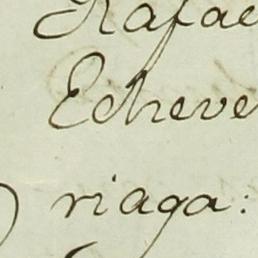 Rafae
Echeve
riaga: